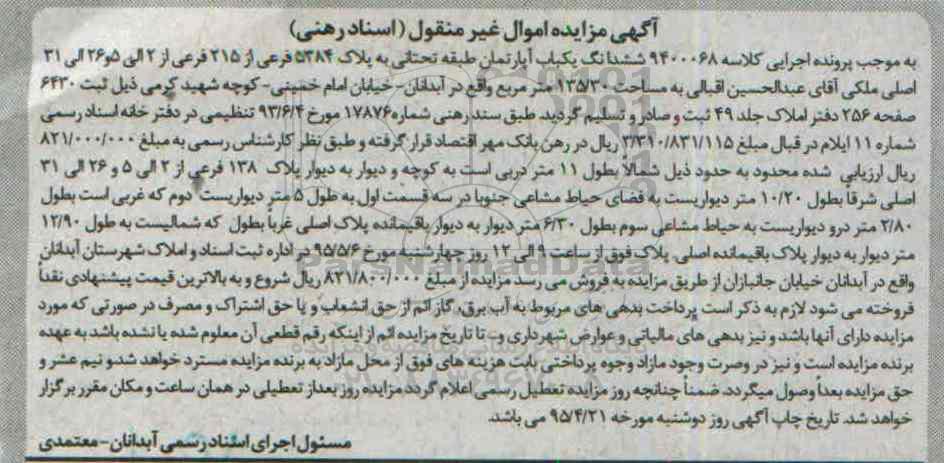 آگهی مزایده اموال غیر منقول (اسناد رهنی)
به موجب پرونده اجرایی کلاسه ۹۴۰۰۰۶۸ ششدانگ یکباب آپارتمان طبقه تحتانی به پلاک ۵۳۸۴ فرعی از ۲۱۵ فرعی از ۲ الی ۵و۲۶ الی ۳۱
اصلی ملکی آقای عبدالحسین اقبالی به مساحت ۱۲۵/۳۰ متر مربع واقع در آبدانان-خیابان امام خمینی- کوچه شهید کرمی ذیل ثبت ۶۴۳۰
صفحه ۲۵۶ دفتر املاک جلد ۴۹ ثبت و صادر و تسلیم گردید. طبق سند رهنی شماره ۱۷۸۷۶ مورخ ۹۳/۶/۴ تنظیمی در دفتر خانه اسناد رسمی
شماره ۱۱ ایلام در قبال مبلغ ۲/۳۱۰/۸۳۱/۱۱۵ ریال در رهن بانک مهر اقتصاد قرار گرفته و طبق نظر کارشناس رسمی به مبلغ ۸۲۱/۰۰۰/۰۰۰
ریال ارزیابی شده محدود به حدود ذیل شمالا بطول ۱۱ متر دربی است به کوچه و دیوار به دیوار پلاک ۱۳۸ فرعی از ۲ الی ۵ و ۲۶ الی ۳۱
اصلی شرقا بطول ۱۰/۲۰ متر دیواریست به فضای حیاط مشاعی جنوبا در سه قسمت اول به طول ۵ متر دیواریست دوم که غربی است بطول
۲/۸۰ متر درو دیواریست به حیاط مشاعی سوم بطول ۶/۳۰ متر دیوار به دیوار باقیمانده پلاک اصلی غربا بطول که شمالیست به طول ۱۲/۹۰
متر دیوار به دیوار پلاک باقیمانده اصلی. پلاک فوق از ساعت ۹ الی ۱۲ روز چهارشنبه مورخ ۹۵/۵/۶ در اداره ثبت اسناد و املاک شهرستان آبدانان
واقع در آبدانان خیابان جانبازان از طریق مزایده به فروش می رسد مزایده از مبلغ ۸۲۱/۸۰۰/۰۰۰ ریال شروع و به بالاترین قیمت پیشنهادی نقداً
فروخته می شود لازم به ذکر است پرداخت بدهی های مربوط به آب، برق، گاز اعم از حق انشعاب و یا حق اشتراک و مصرف در صورتی که مورد
مزایده دارای آنها باشد و نیز بدهی های مالیاتی و عوارض شهرداری و... تا تاریخ مزایده اعم از اینکه رقم قطعی آن معلوم شده یا نشده باشد به عهده
برنده مزایده است و نیز در وصرت وجود مازاد وجوه پرداختی بابت هزینه های فوق از محل مازاد به برنده مزایده مسترد خواهد شد و نیم عشر و
حق مزایده بعداً وصول میگردد. ضمناً چنانچه روز مزایده تعطیل رسمی اعلام گردد مزایده روز بعداز تعطیلی در همان ساعت و مکان مقرر برگزار
خواهد شد. تاریخ چاپ آگهی روز دوشنبه مورخه ۹۵/۴/۲۱ می باشد.
مسئول اجرای اسناد رسمی آبدانان-معتمدی
ParsNamadData